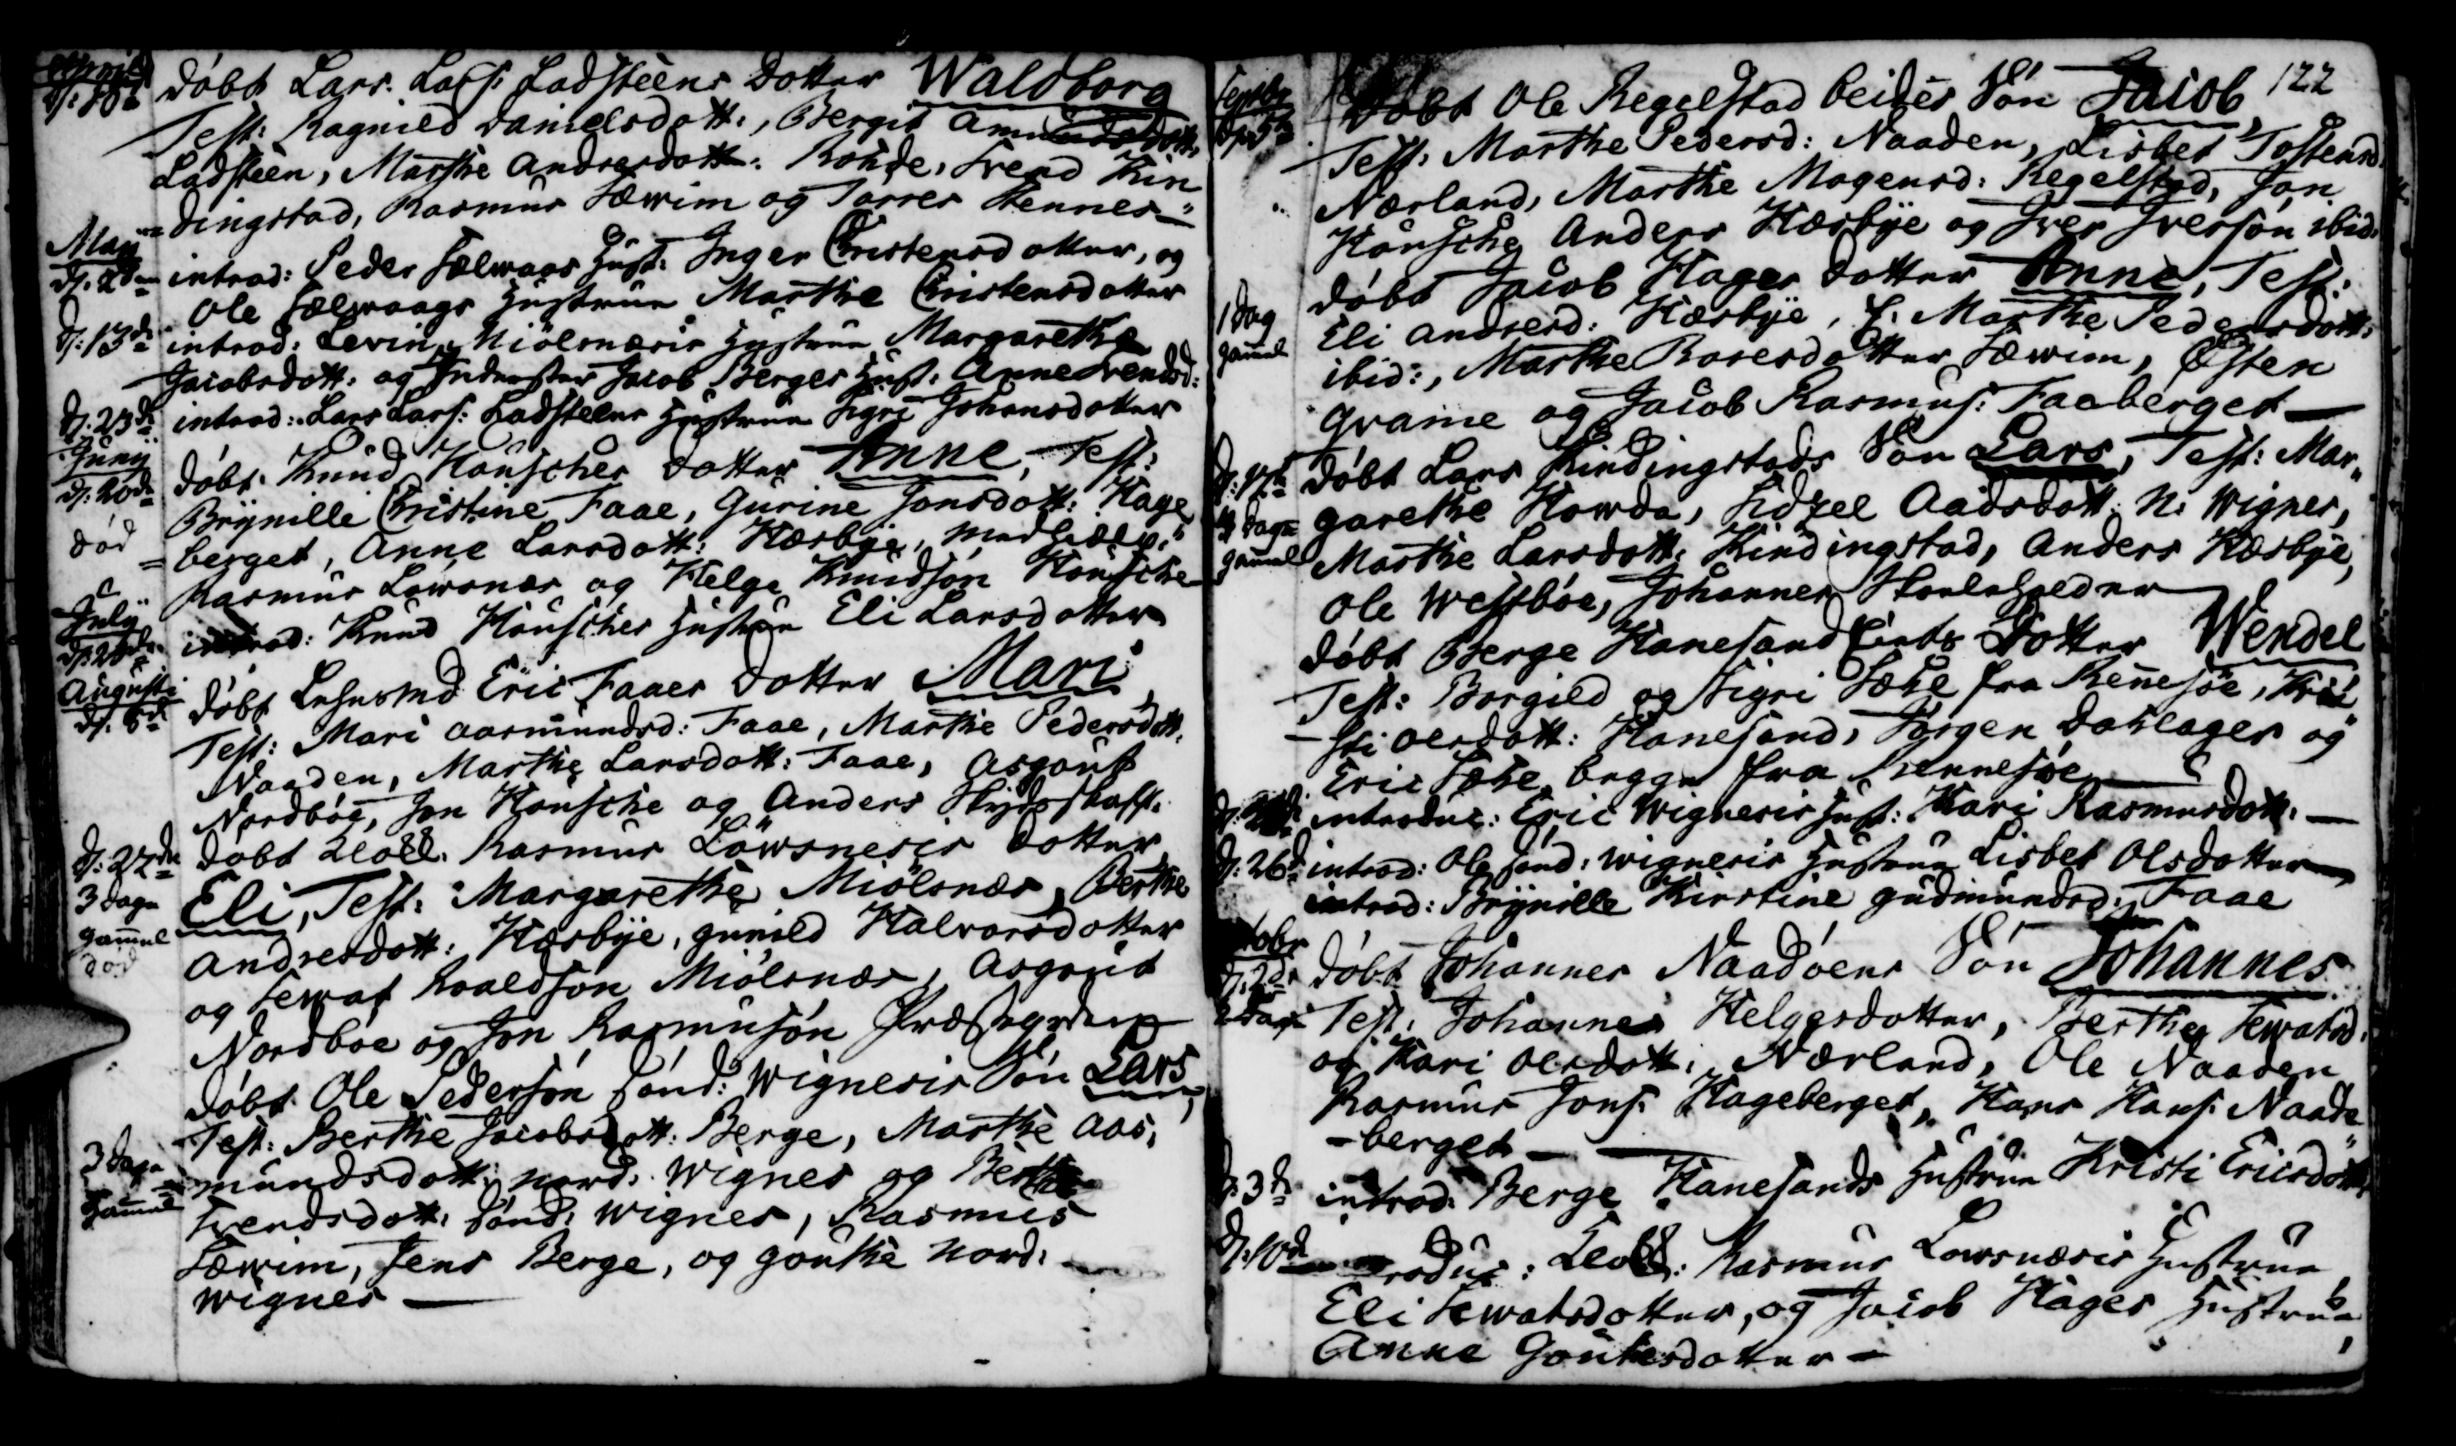 April
d: 18de døbt Lars Lars: Ladsteens Dotter Waldborg
Test: Ragnild Danielsdott:, Bergit Amundsdott:
Ladsteen, Marthe Andersdott: Rohde, Svend Kin
dingstad, Rasmus Særim og Torres Hennes-
May
d: 2den introd: Peder Sælwaags Hust: Inger Cristensdotter, og
Ole Sælwaags Hustrue Marthe Cristensdotter
d: 13de introd: Levin Miölsnæsis Hustrue Margarethe
Jacobsdott: og Inderster Jacob Berges Hust: Anne Svendsd:
d: 23de introd: Lars Lars: Ladsteens Hustrue Sigri Johansdotter
Juny
d: 20de døbt Knud Hausches Dotter Anne, Test:
Brynille Cristine Faae, Gurine Jonsdott: Hage
død
=berget, Anne Larsdott: Hæsbye,
Rasmus Lowsnæs og Helge Knudsøn Hausche
July
introd: Knud Hausches Hustrue Eli Larsdotter
Augusti
d: 8de døbt Lehnsmd Eric Faaes Dotter Mari
Test: Mari Aasmundsd: Faae, Marthe Pedersdott.
Naaden, Marthe Larsdott: Faae, Asgout
Nordböe, Jon Hausche og Anders Skydsskaff.
d: 22de døbt Rasmus Löwsnesis Dotter
3 dage
gamel
død
Eli, Test: Margarethe Miölsnæs, Berthe
Andersdott: Hæsbye, Gunild Halvorsdotter
og Roaldsøn Miölsnæs, Asgout
Nordböe og Jon Rasmusøn Præstegarden
døbt Ole Pedersøn Sönd: Wignesis Søn Lars,
Test: Berthe Jacobsdott: Berge, Marthe Aas,
3 dage
gamel
mundsdott: Nord: Wignes og Berthe
Svendsdott. Sönd: Wignes, Rasmus
Særim, Jens Berge, og Goutke Nord:
Wignes
122
Septbr
døbt Ole Regelstad beides Søn Jacob,
Test: Marthe Pedersd: Naaden, Lisbet Tostensd.
Nærland, Marthe Mogensd: Regelstad, Jon
Hausche Anders Hæsbye og Iver Iversøn ibid:
døbt Jacob Hages Dotter Anne, Test:
1 dag
gamel
Eli Andersd: Hæsbye, Marthe Pedersdott:
ibid:, Marthe Roresdotter Særim, Østen
Graine og Jacob Rasmus: Faaberget
døbt Lars Kindingstads Søn Lars, Test: Mar„
4 dage
gamel
garethe Howda, Sidzel Aadsdott. N: Wignes,
Marthe Larsdott: Kindingstad, Anders Hæsbye,
Ole Westböe, Johannes Skoleholder
døbt Berge Hanesand Dotter Wendel
Test: Borgild og Sigri fra Renesöe, Kri
sti Olesdott: Hanesand, Jörgen Dahlager og
Eric begge fra Rennesöe
introduc: Eric Wignesis Hust: Kari Rasmusdott.
d: 26de introd: Ole Sönd: Wignesis Hustrue Lisbet Olsdotter
introd: Brynille Kirstine Gudmundsd: Faae
Octobr
d: 2de døbt Johannes Naadöens Søn Johannes
2 dage
Test: Johannes Helgesdotter, Berthe
og Kari Olesdott: Nærland, Ole Naaden
Rasmus Jons: Hageberget, Hans Hans: Naade
-berget
d: 3de introd: Berge Hanesands Hustrue Kristi Ericsdott:
d: 10de introduc: Rasmus Lowsnæsis Hustrue
Eli Sewatsdotter, og Jacob Hages Hustrue
Anne Goutesdotter